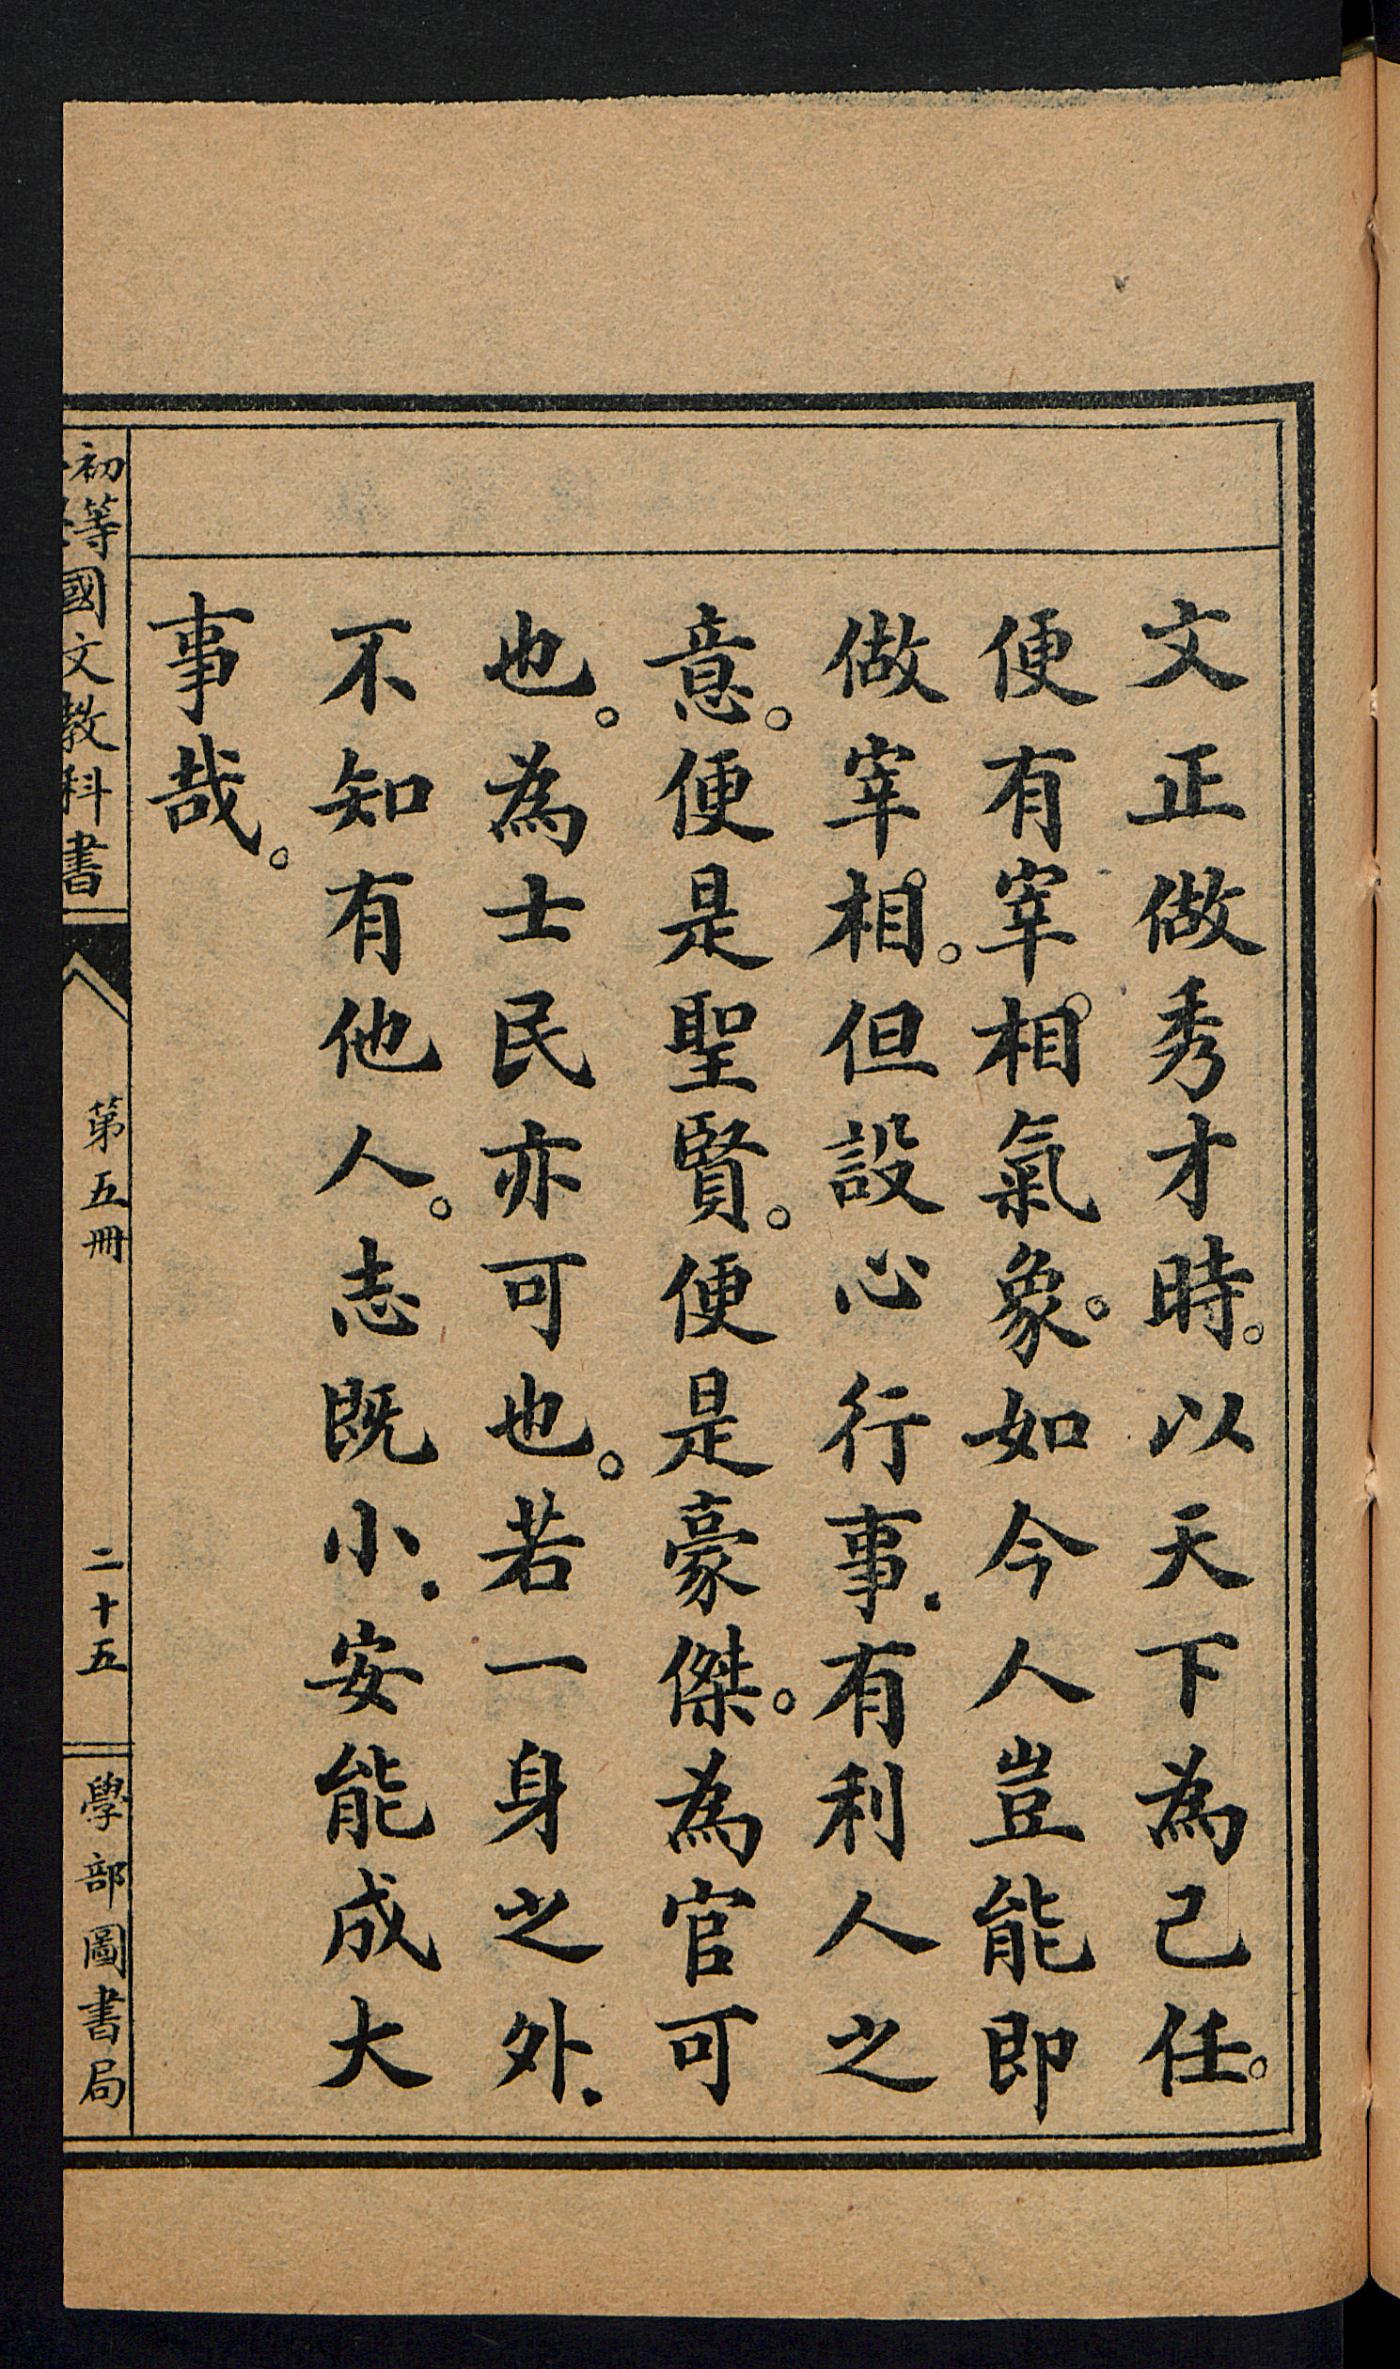 文正做秀才時。以天下為己任。
便有宰相氣象。如今人豈能即
做宰相。但設心行事.有利人之
意。便是聖賢。便是豪傑。為官可
也。為士民亦可也。若一身之外.
不知有他人。志既小.安能成大
事哉。
初等國文教科書 第五冊 二十五 學部圖書局